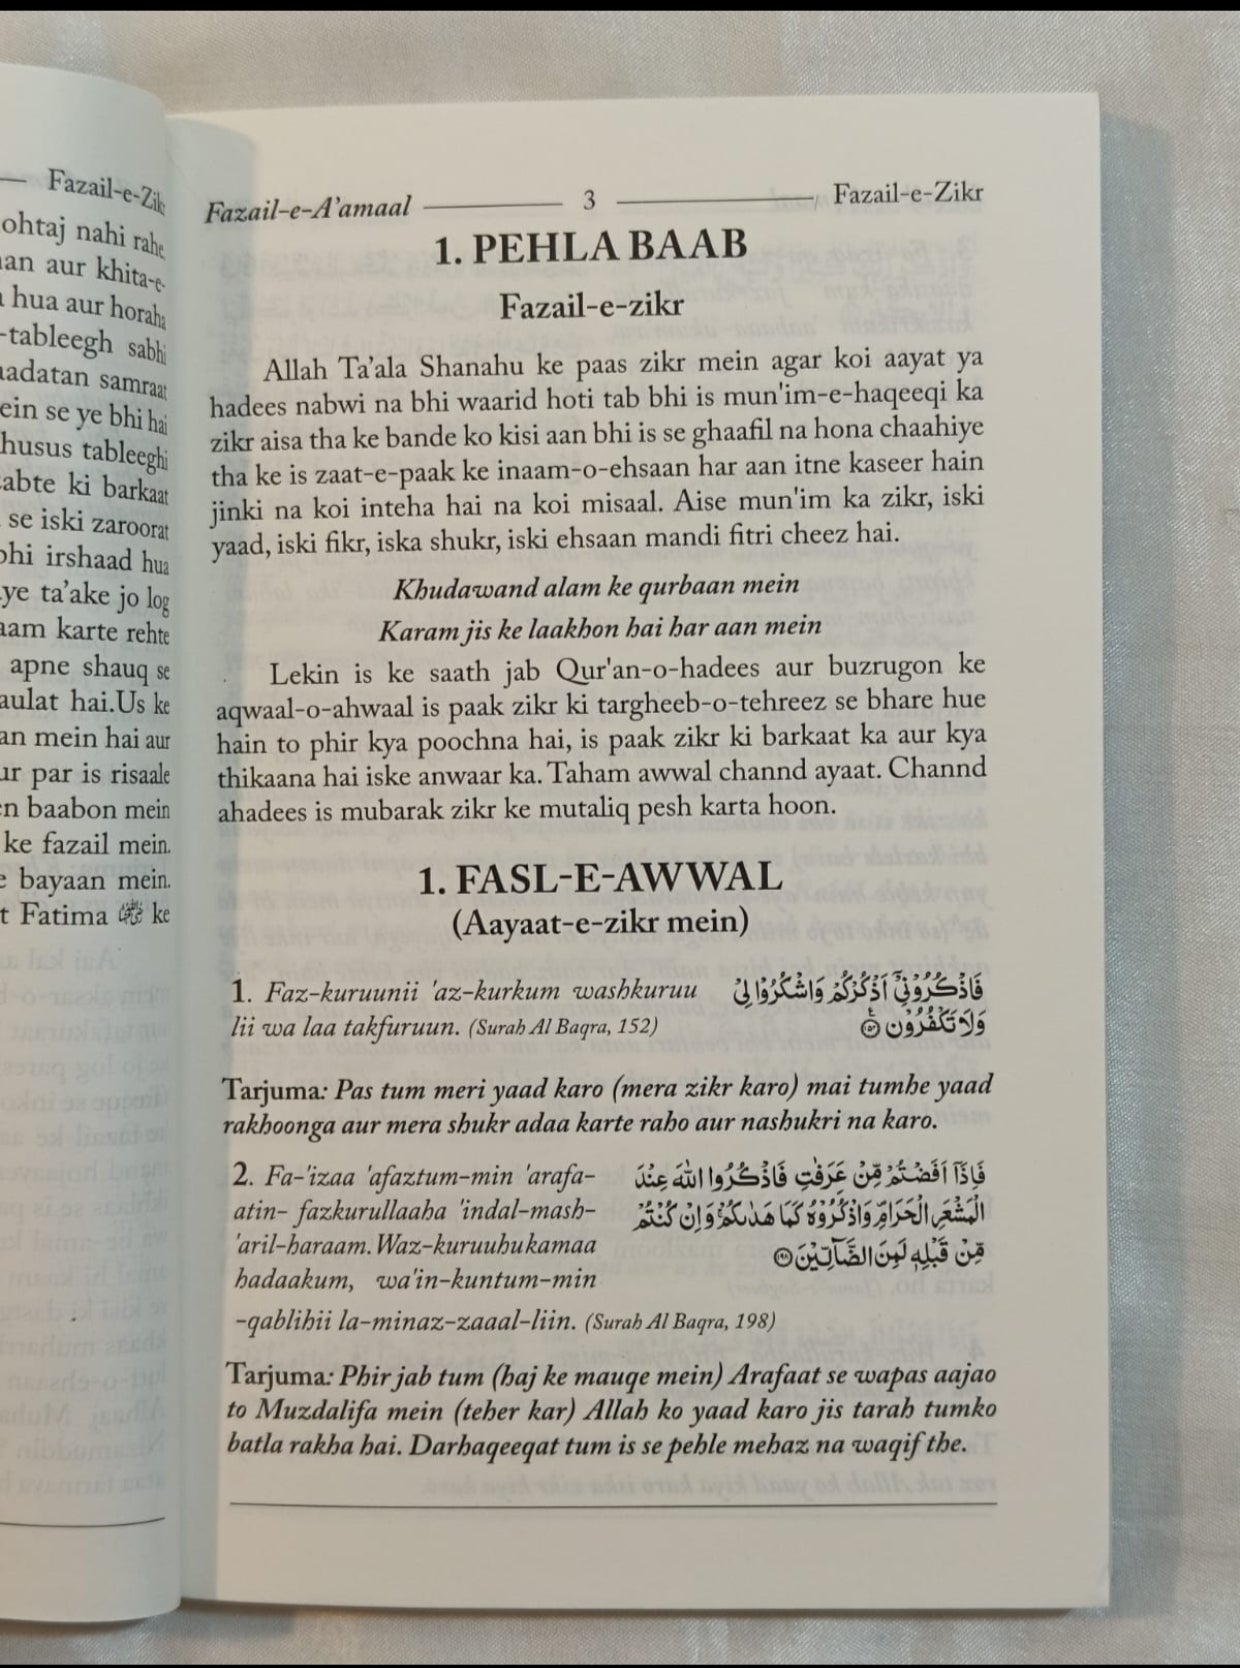 Fazail-e-Zik
ohtaj nahi rahe
an aur khita-e-
hua aur horaha
-tableegh sabhi
adatan samraat
ein se ye bhi hai
husus tableeghi
abte ki barkaat
se iski zaroorat
bhi irshaad hua
ye ta'ake jo log
aam karte rehte
apne shauq se
aulat hai.Us ke
an mein hai aur
ur par is risaale
en baabon mein
ke fazail mein.
e bayaan mein.
t Fatima ke
Fazail-e-A'amaal 3 Fazail-e-Zikr
1. PEHLA BAAB
Fazail-e-zikr
Allah Ta'ala Shanahu ke paas zikr mein agar koi aayat ya
hadees nabwi na bhi waarid hoti tab bhi is mun'im-e-haqeeqi ka
zikr aisa tha ke bande ko kisi aan bhi is se ghaafil na hona chaahiye
tha ke is zaat-e-paak ke inaam-o-ehsaan har aan itne kaseer hain
jinki na koi inteha hai na koi misaal. Aise mun'im ka zikr, iski
yaad, iski fikr, iska shukr, iski ehsaan mandi fitri cheez hai.
Khudawand alam ke qurbaan mein
Karam jis ke laakhon hai har aan mein
Lekin is ke saath jab Qur'an-o-hadees aur buzrugon ke
aqwaal-o-ahwaal is paak zikr ki targheeb-o-tehreez se bhare hue
hain to phir kya poochna hai, is paak zikr ki barkaat ka aur kya
thikaana hai iske anwaar ka. Taham awwal channd ayaat. Channd
ahadees is mubarak zikr ke mutaliq pesh karta hoon.
1. FASL-E-AWWAL
(Aayaat-e-zikr mein)
1. Faz-kuruunii 'az-kurkum washkuruu
lii wa laa takfuruun. (Surah Al Baqra, 152)
فَاذْكُرُوْنِيْٓ اَذْكُرْكُمْ وَاشْكُرُوْا لِيْ
وَلَا تَكْفُرُوْنِ ۝
Tarjuma: Pas tum meri yaad karo (mera zikr karo) mai tumhe yaad
rakhoonga aur mera shukr adaa karte raho aur nashukri na karo.
2. Fa-'izaa 'afaztum-min 'arafa-
atin- fazkurullaaha 'indal-mash-
'aril-haraam. Waz-kuruuhukamaa
hadaakum, wa'in-kuntum-min
-qablihii la-minaz-zaaal-liin. (Surah Al Baqra, 198)
فَاِذَآ اَفَضْتُمْ مِّنْ عَرَفٰتٍ فَاذْكُرُوا اللّٰهَ عِنْدَ
الْمَشْعَرِ الْحَرَامِ وَاذْكُرُوْهُ كَمَا هَدٰىكُمْ وَاِنْ كُنْتُمْ
مِّنْ قَبْلِهٖ لَمِنَ الضَّآلِّيْنَ ۝۱۹۸
Tarjuma: Phir jab tum (haj ke mauqe mein) Arafaat se wapas aajao
to Muzdalifa mein (teher kar) Allah ko yaad karo jis tarah tumko
batla rakha hai. Darhaqeeqat tum is se pehle mehaz na waqif the.